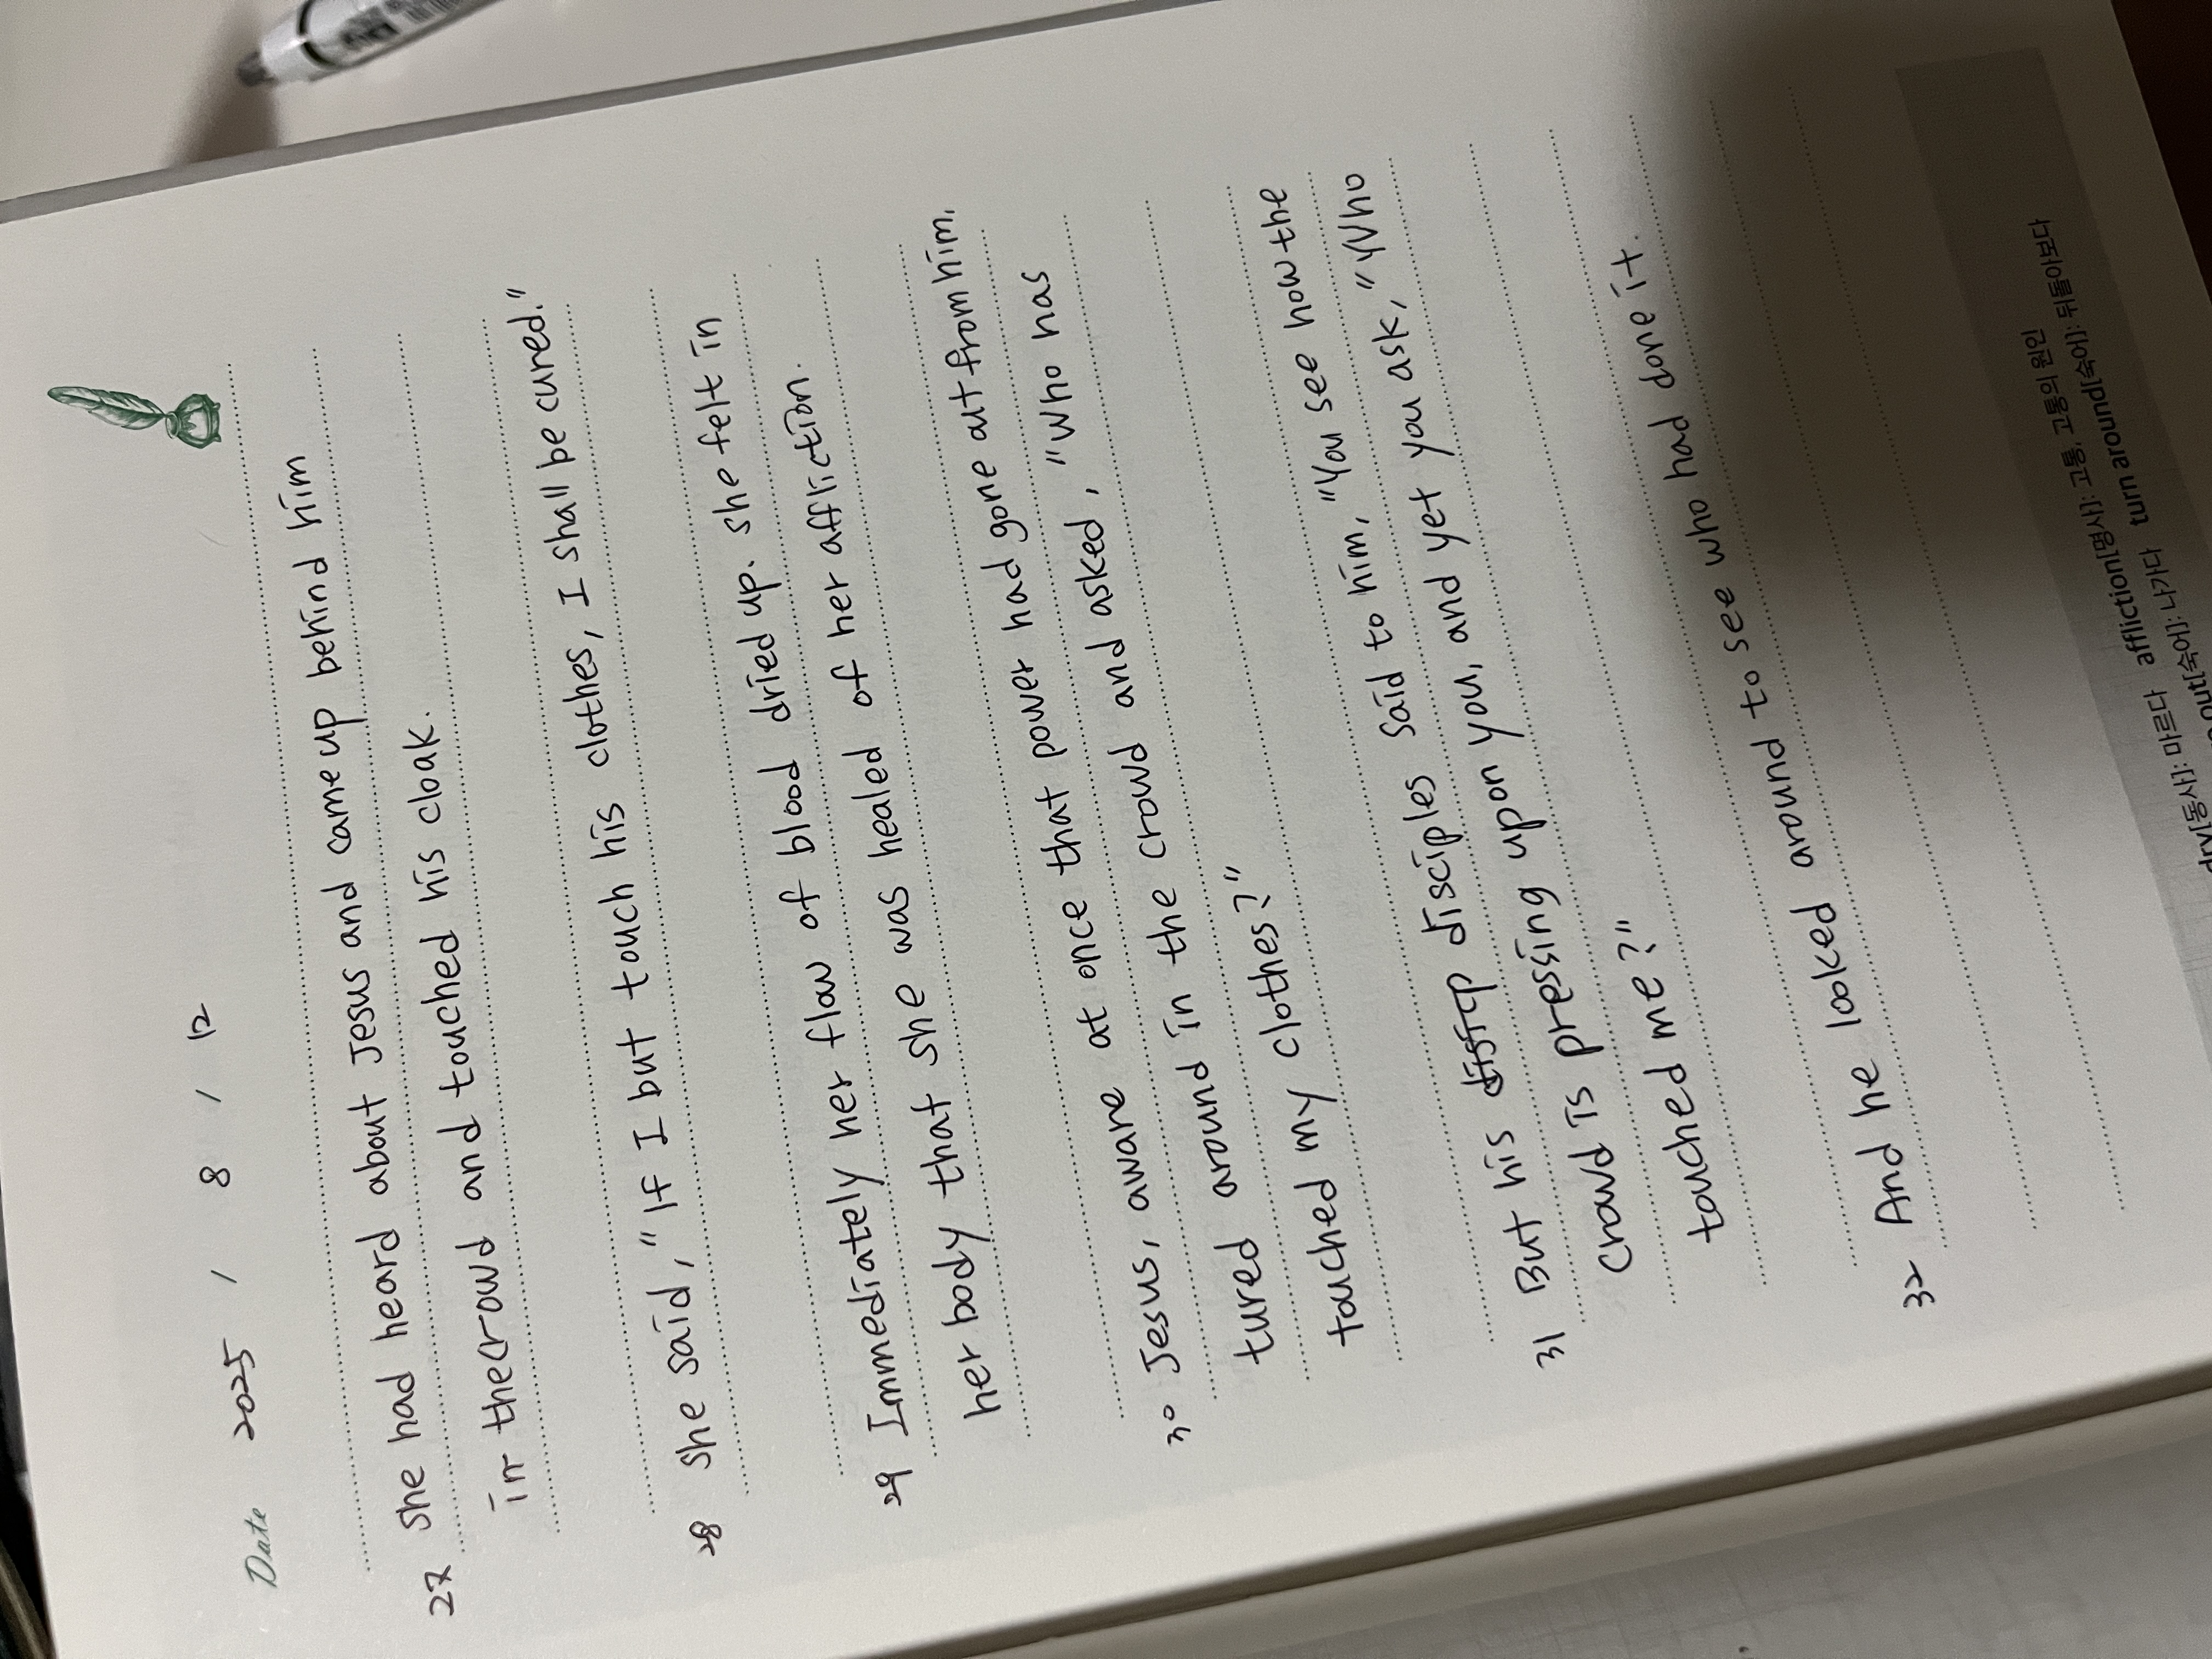 Date 2025 / 8 / 12
27 she had heard about Jesus and came up behind him
in thecrowd and touched his cloak.
28 she said, "If I but touch his clothes, I shall be cured."
29 Immediately her flow of blood dried up. she felt in
her body that she was healed of her affliction.
30 Jesus, aware at once that power had gone out from him,
tured around in the crowd and asked, "Who has
touched my clothes?"
31 But his disciples said to him, "You see how the
crowd is pressing upon you, and yet you ask, "Who
touched me?"
32 And he looked around to see who had done it.
dry[동사]: 마르다 affliction[명사]: 고통, 고통의 원인
out[숙어]: 나가다 turn around[숙어]: 뒤돌아보다